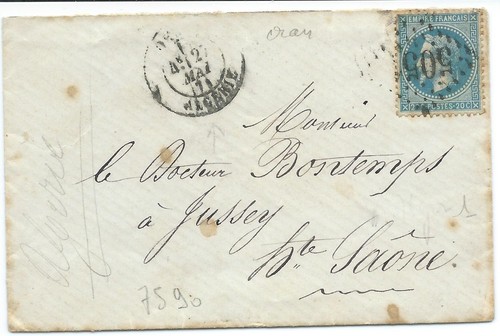 oran
1
12
MAI
71
ALGERIE
EMPIRE FRANÇAIS
POSTES 20 C
Monsieur
le Docteur Bontemps
à Jussey
Hte Saône.
Algérie
1
7590